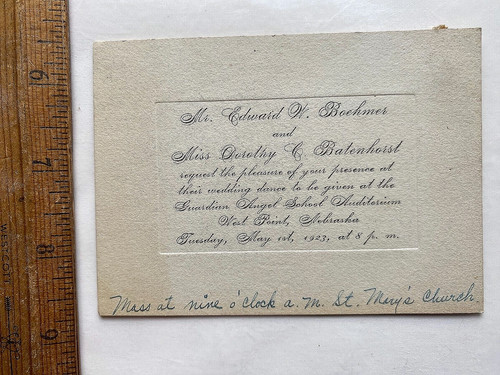 Mr. Edward W. Boehmer
and
Miss Dorothy C. Batenhorst
request the pleasure of your presence at
their wedding dance to be given at the
Guardian Angel School Auditorium
West Point, Nebraska
Tuesday, May 1st, 1923, at 8 p. m.
Mass at nine o'clock a.m. St. Mary's Church.
6
7
8
WESTCOTT